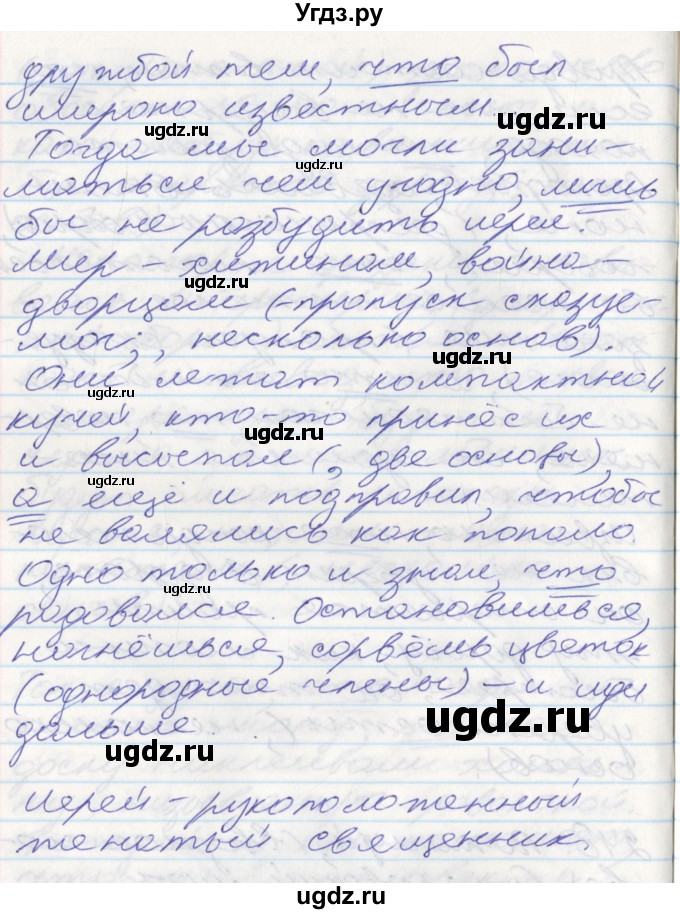 Угдз.ру
дружбой тем, что был
широко известным.
Тогда мы могли зани-
маться чем угодно, лишь
бы не разбудить иерея.
Мир – хитином, война –
дворцом (–пропуск сказуе-
мог; , несколько основ).
Они лежат компактной
кучей, кто-то принёс их
и высыпал (, две основы),
а ещё и подправил, чтобы
не валялись как попало.
Одно только и знал, что
радовался. Остановишься,
нагнёшься, сорвёшь цветок
(однородные члены) – и иди
дальше.
Иерей – рукоположенный
женатый священник.
ugdz.ru
ugdz.ru
ugdz.ru
ugdz.ru
ugdz.ru
ugdz.ru
ugdz.ru
ugdz.ru
ugdz.ru
ugdz.ru
ugdz.ru
ugdz.ru
ugdz.ru
ugdz.ru